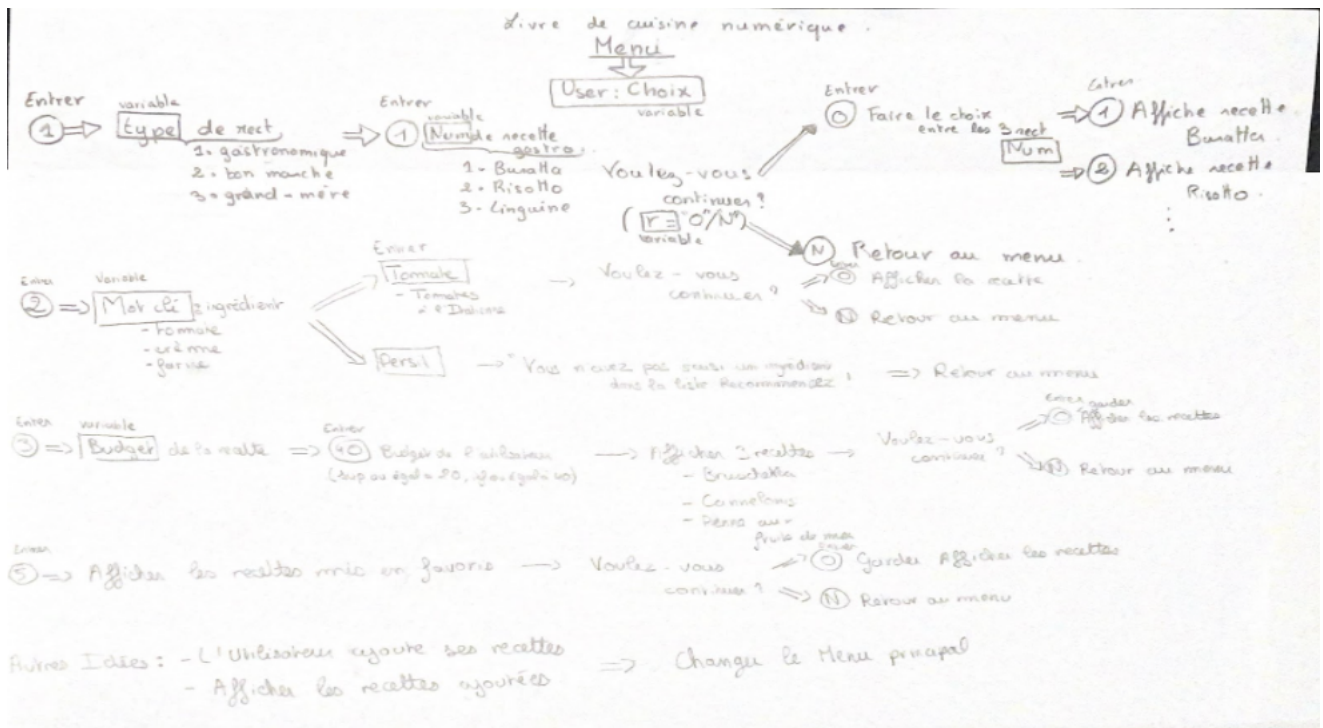 Livre de cuisine numérique.
Menu
User : Choix
variable
Entrer
1
variable
type de recet
1. gastronomique
2. bon marché
3. grand-mère
Entrer
1
variable
Num de recette
gastro.
1 - Buratta
2 - Risotto
3 - Linguine
Voulez-vous
continuer ?
( r = "O"/N")
variable
Entrer
O Faire le choix
entre les 3 rect
Num
Entrer
1 Affiche recette
Buratta
2 Affiche recette
Risotto.
N Retour au menu.
Entrer
2
Variable
Mot clé : ingrédient
- tomate
- crème
- farine
Entrer
Tomate
- Tomates
Voulez-vous
continuer ?
O Afficher la recette
N Retour au menu
Persil
"Vous n'avez pas saisi un ingrédient
dans la liste Recommencez"
Retour au menu
Entrer
3
variable
Budget de la recette
Entrer
40 Budget de l'utilisateur
(sup ou égal à 20, égal à 40)
Afficher 3 recettes
- Bruschetta
- Cannelonis
- Penne aux
fruits de mer
Voulez-vous
continuer ?
Entrer garder
O Afficher les recettes
N Retour au menu
Entrer
5 Afficher les recettes mis en favoris
Voulez-vous
continuer ?
Entrer
O Garder Afficher les recettes
N Retour au menu
Autres Idées : - L'utilisateur ajoute ses recettes
- Afficher les recettes ajoutées
Changer le Menu principal